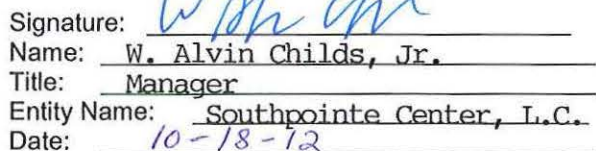 Signature:
Name: W. Alvin Childs, Jr.
Title: Manager
Entity Name: Southpointe Center, L.C.
Date: 10-18-12